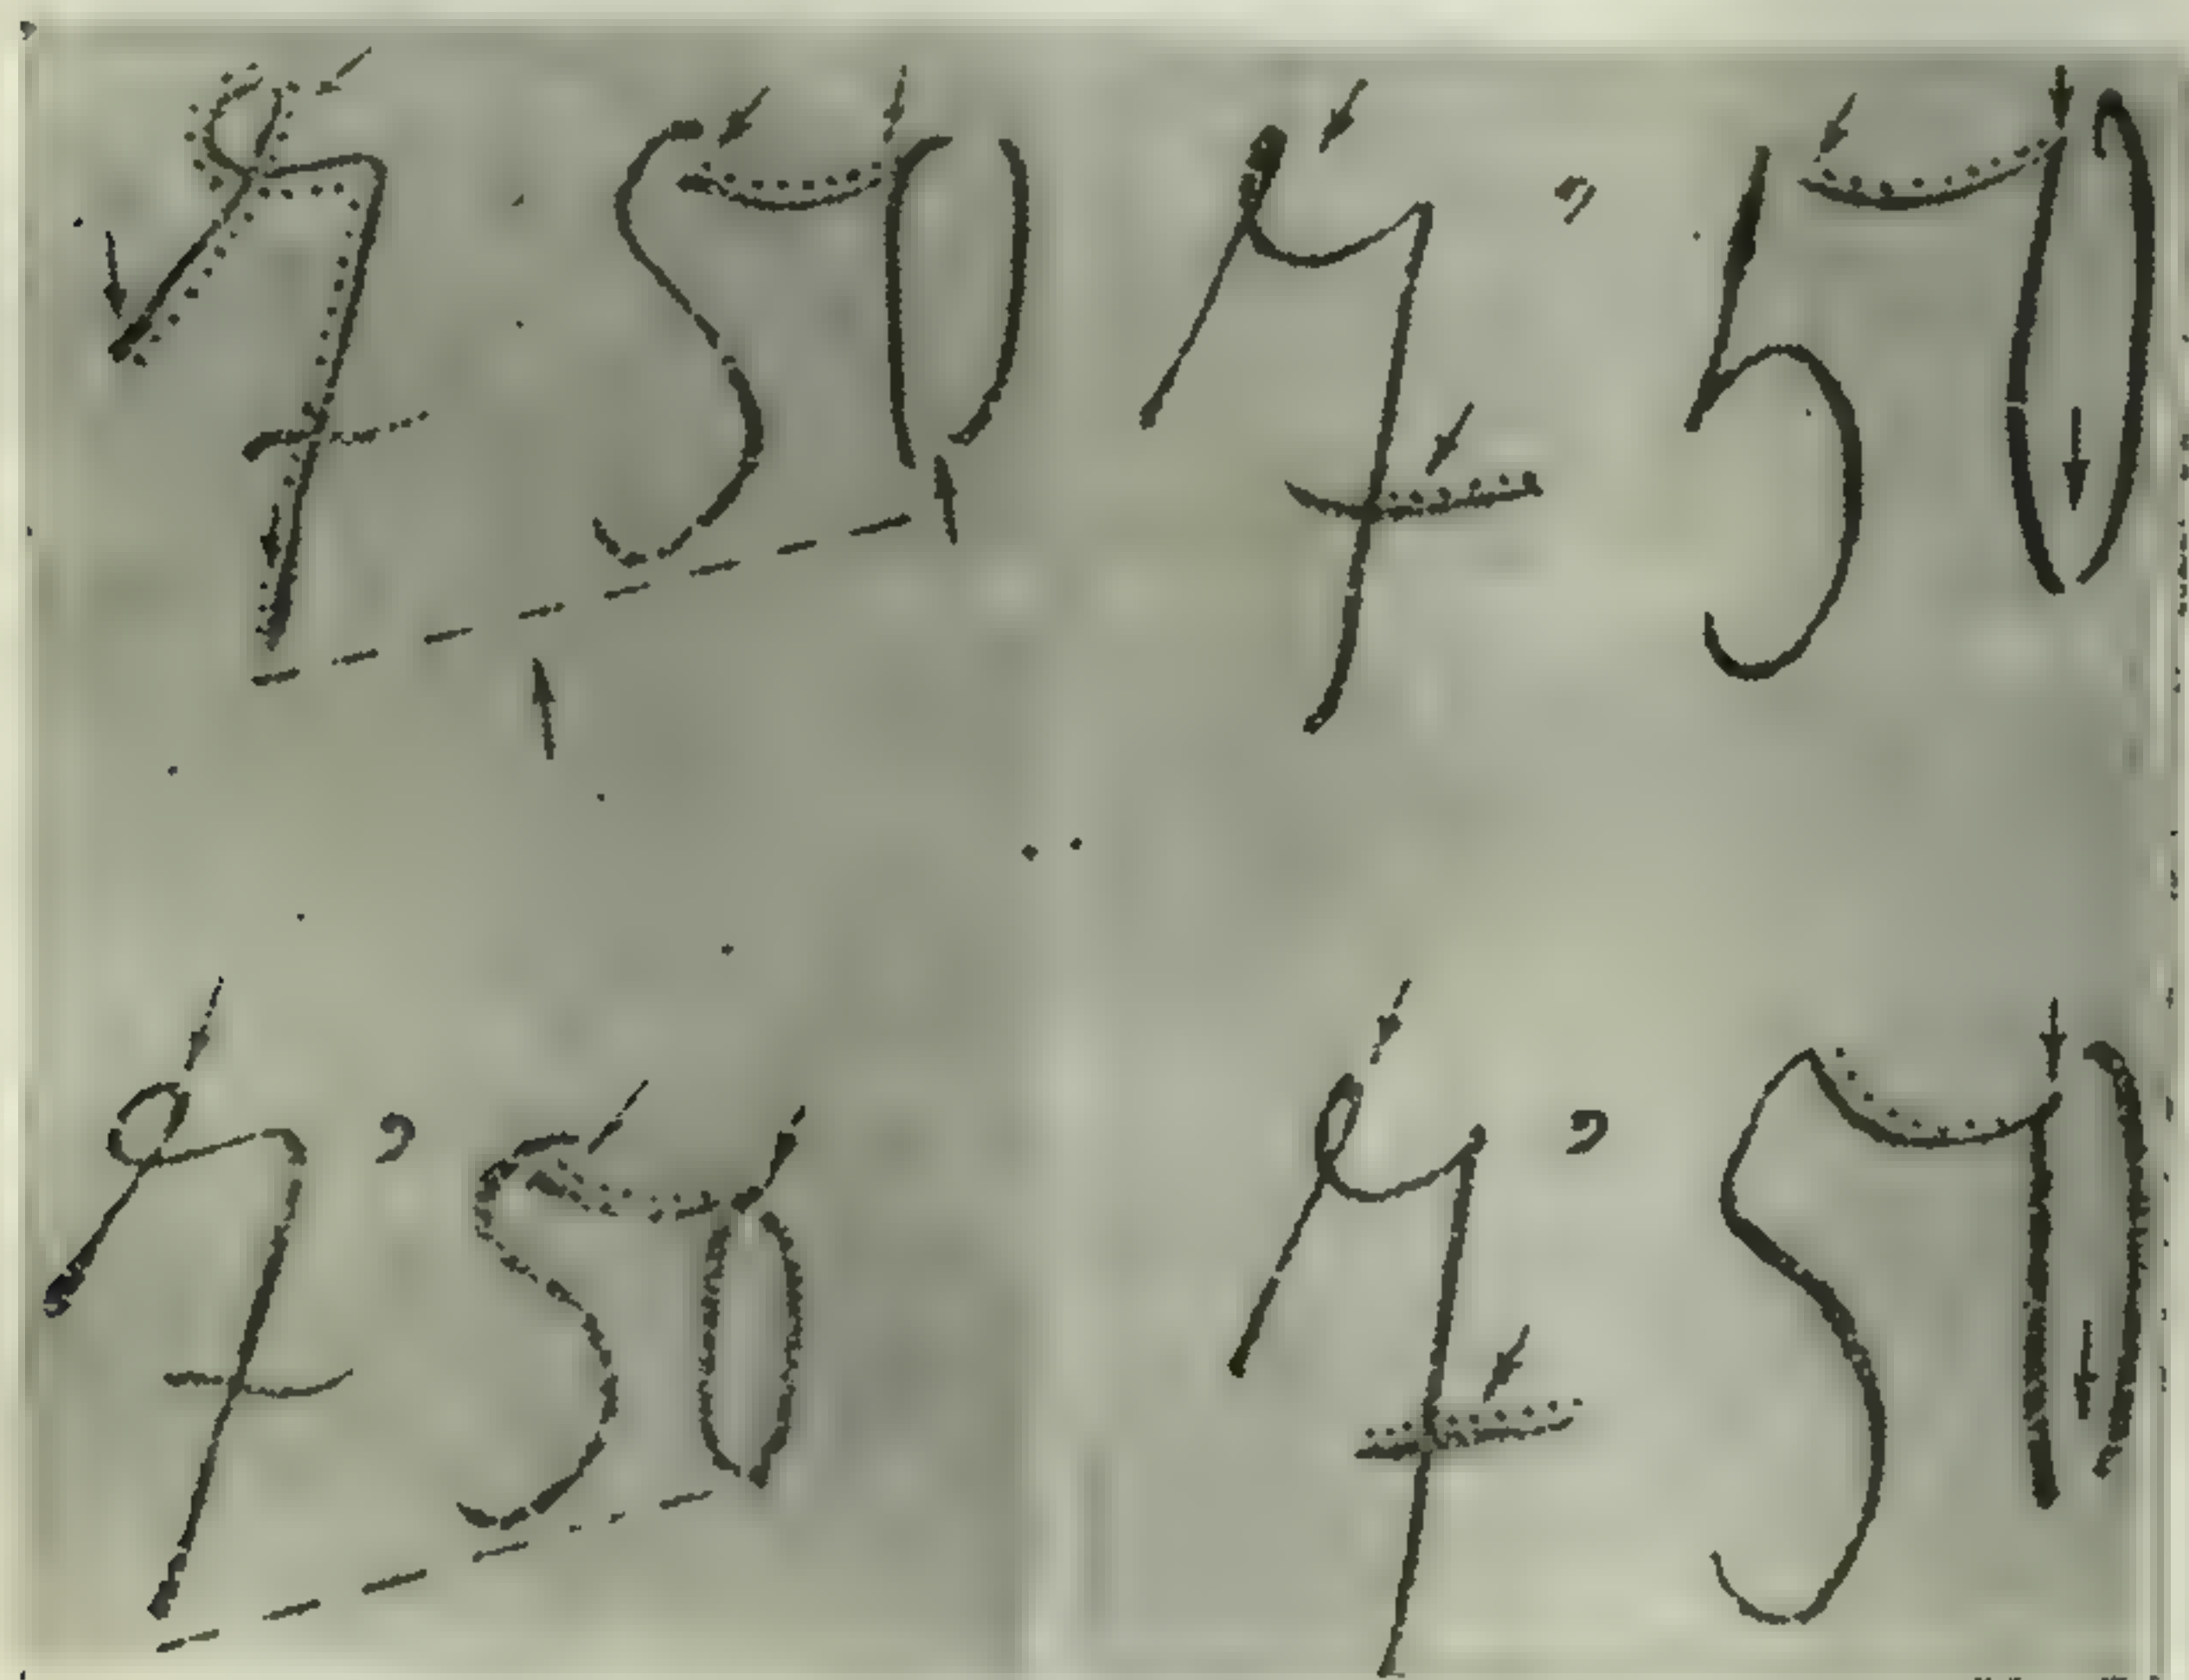 750 7,50
7,50 7,50